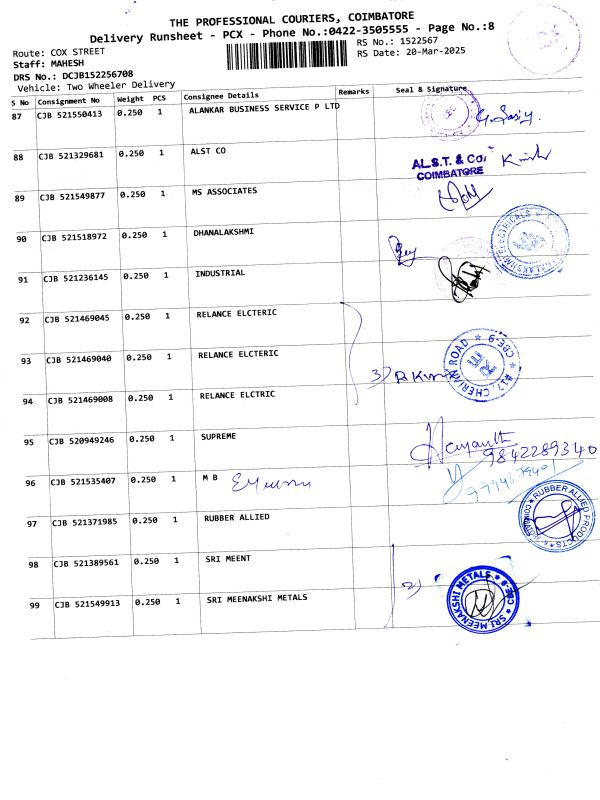 THE PROFESSIONAL COURIERS, COIMBATORE
Delivery Runsheet - PCX - Phone No.:0422-3505555 - Page No.:8
Route: COX STREET
RS No.: 1522567
Staff: MAHESH
RS Date: 20-Mar-2025
DRS No.: DCJB152256708
Vehicle: Two Wheeler Delivery
S No Consignment No Weight PCS Consignee Details Remarks Seal & Signature
87 CJB 521550413 0.250 1 ALANKAR BUSINESS SERVICE P LTD
88 CJB 521329681 0.250 1 ALST CO
AL.S.T. & Co.
COIMBATORE
89 CJB 521549877 0.250 1 MS ASSOCIATES
90 CJB 521518972 0.250 1 DHANALAKSHMI
91 CJB 521236145 0.250 1 INDUSTRIAL
92 CJB 521469045 0.250 1 RELANCE ELCTERIC
93 CJB 521469040 0.250 1 RELANCE ELCTERIC
3)
RE
#17, CHERIAN ROAD * CBE-9
94 CJB 521469008 0.250 1 RELANCE ELCTRIC
95 CJB 520949246 0.250 1 SUPREME
9842289340
96 CJB 521535407 0.250 1 M B
97 CJB 521371985 0.250 1 RUBBER ALLIED
RUBBER ALLIED PRODUCTS
98 CJB 521389561 0.250 1 SRI MEENT
2)
99 CJB 521549913 0.250 1 SRI MEENAKSHI METALS
SRI MEENAKSHI METALS * CBE-9